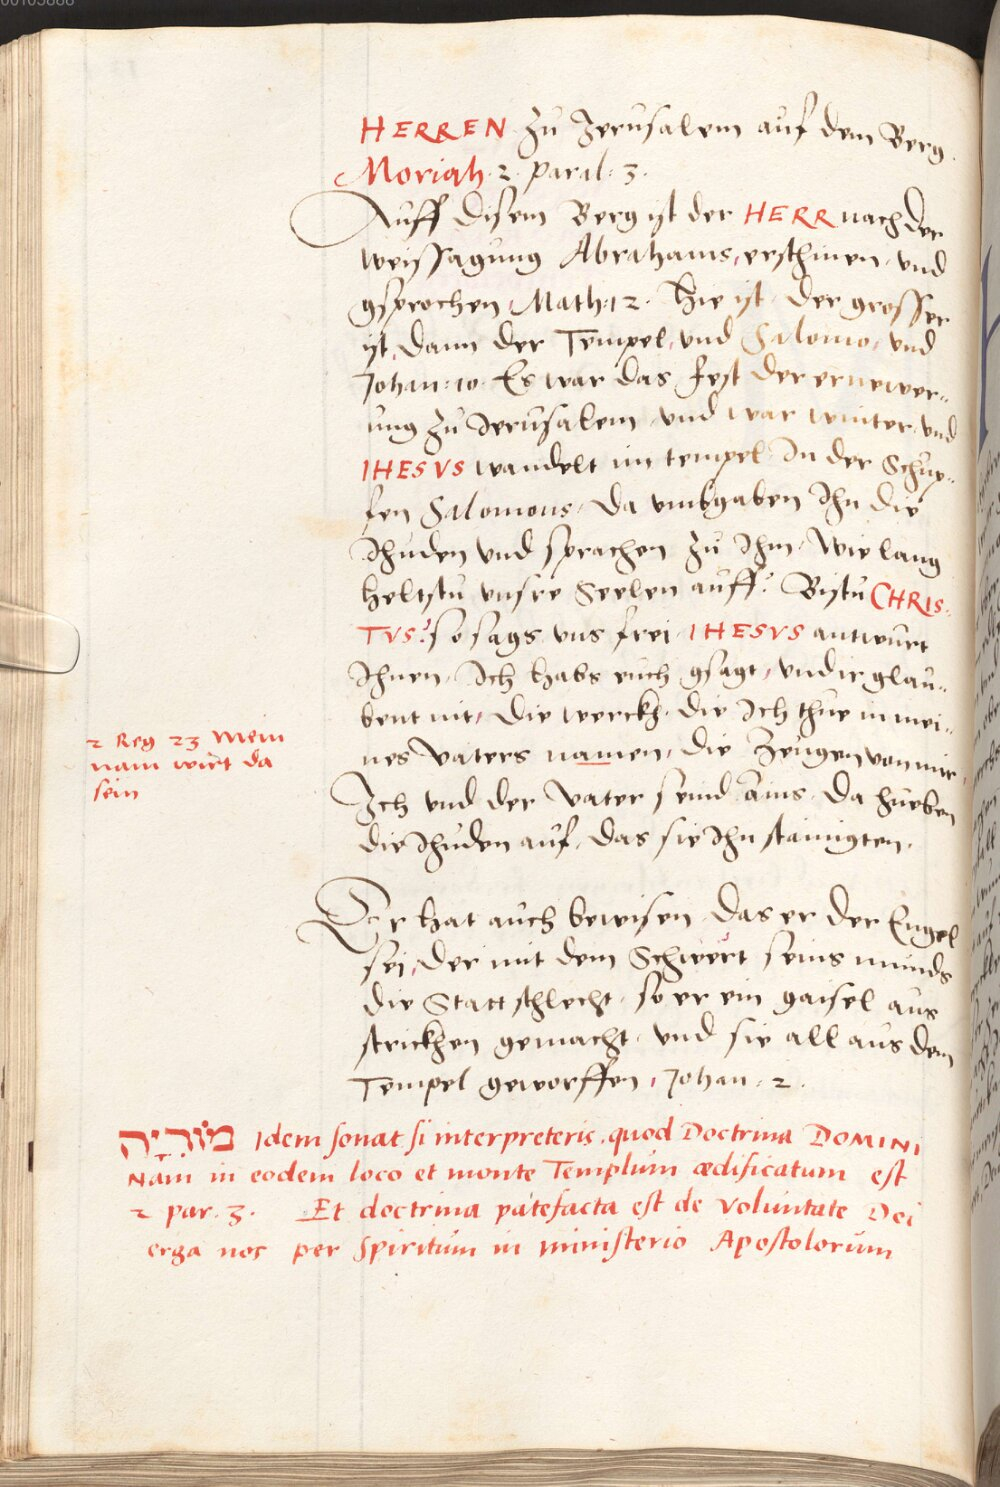 00105888
HERREN zu Jerusalem auf dem Berg
Moriah. 2. paral. 3.
Auff disem Berg ist der HERR nach der
weissagung Abrahams, erschinen, und
gsprochen, Math: 12. Hie ist, der grosser
ist, dann der Tempel, und Salomo, und
Johan: 10. Es war das fest der ernewer-
ung zu Jerusalem, und war winter, und
IHESVS wandelt im tempel In der Schup-
fen Salomons, Da umbgaben Ihn die
Ihuden und sprachen zu Ihm, Wie lang
heltstu unsre Seelen auff? Bistu CHRIS-
TVS? so sags uns frei, IHESVS antwurt
Ihnen, Ich habs euch gsagt, und ir glau-
bent nit, die werckh, die Ich thue in mei-
nes Vaters namen, die Zeugen von mir,
2 Reg 23 Mein
nam wirt da
sein
Ich und der Vater seind ains, Da hueben
die Ihuden auf, das sie Ihn stainigten.
Der hat auch bewisen, das er der Engel
sei, der mit dem Schwert seins munds
die Statt schlecht, so er ein gaisel aus
strickhen gemacht, und sie all aus dem
Tempel geworffen, Johan. 2.
מוֹרִיָּה Idem sonat si interpreteris, quod Doctrina DOMINI
Nam in eodem loco et monte Templum ædificatum est
2 par. 3. Et doctrina patefacta est de voluntate Dei
erga nos per Spiritum in ministerio Apostolorum